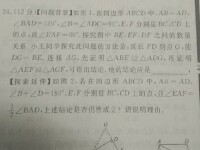 24.(12分)【问题背景】如图1,在四边形ABCD中,AB=AD,
∠BAD=120°,∠B=∠ADC=90°,E,F分别是BC,CD上
的点,且∠EAF=60°,探究图中BE,EF,FD之间的数量
关系.小王同学探究此问题的方法是:延长FD到点G,使
DG=BE,连结AG,先证明△ABE≌△ADG,再证明
△AEF≌△AGF,可得出结论,他的结论应是
【探索延伸】如图2,若在四边形ABCD中,AB=AD,
∠B+∠D=180°,E,F分别是BC,CD上的点,且∠EAF=
1/2∠BAD,上述结论是否仍然成立?请说明理由.